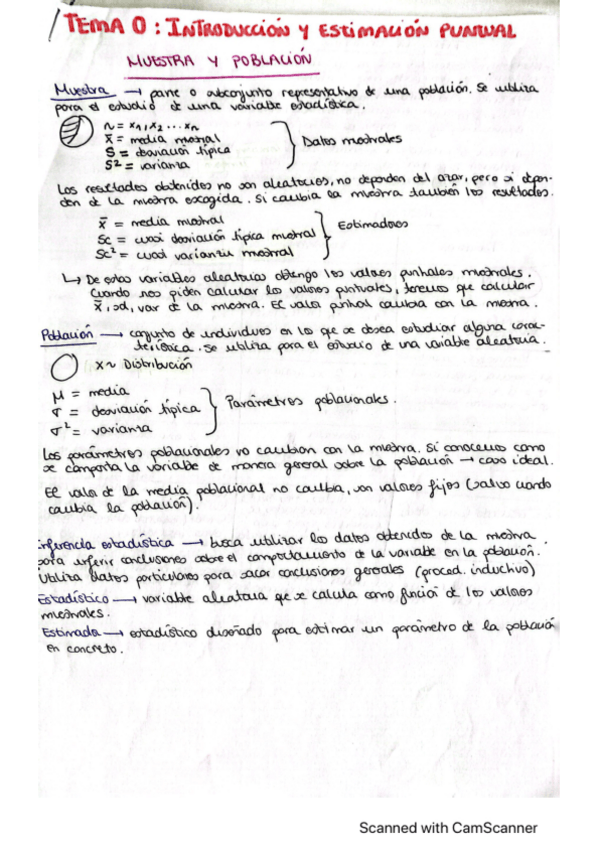 TEMA 0: INTRODUCCIÓN Y ESTIMACIÓN PUNTUAL
MUESTRA Y POBLACIÓN
Muestra → parte o subconjunto representativo de una población. Se utiliza
para el estudio de una variable estadística.
n = x1, x2 ... xn
x̄ = media muestral
S = desviación típica
S² = varianza
Datos muestrales
Los resultados obtenidos no son aleatorios, no dependen del azar, pero si depen-
den de la muestra escogida. Si cambia la muestra también los resultados.
x̄ = media muestral
Sc = cuasi desviación típica muestral
Sc² = cuasi varianza muestral
Estimadores
↳ De estas variables aleatorias obtengo los valores puntuales muestrales.
Cuando nos piden calcular los valores puntuales, tenemos que calcular
x̄, sd, var de la muestra. El valor puntual cambia con la muestra.
Población → conjunto de individuos en los que se desea estudiar alguna carac-
terística. Se utiliza para el estudio de una variable aleatoria.
X ~ Distribución
μ = media
σ = desviación típica
σ² = varianza
Parámetros poblacionales.
Los parámetros poblacionales no cambian con la muestra. Si conocemos como
se comporta la variable de manera general sobre la población → caso ideal.
El valor de la media poblacional no cambia, son valores fijos (salvo cuando
cambia la población).
Inferencia estadística → busca utilizar los datos obtenidos de la muestra
para inferir conclusiones sobre el comportamiento de la variable en la población.
Utiliza datos particulares para sacar conclusiones generales (proced. inductivo)
Estadístico → variable aleatoria que se calcula como función de los valores
muestrales.
Estimador → estadístico diseñado para estimar un parámetro de la población
en concreto.
Scanned with CamScanner